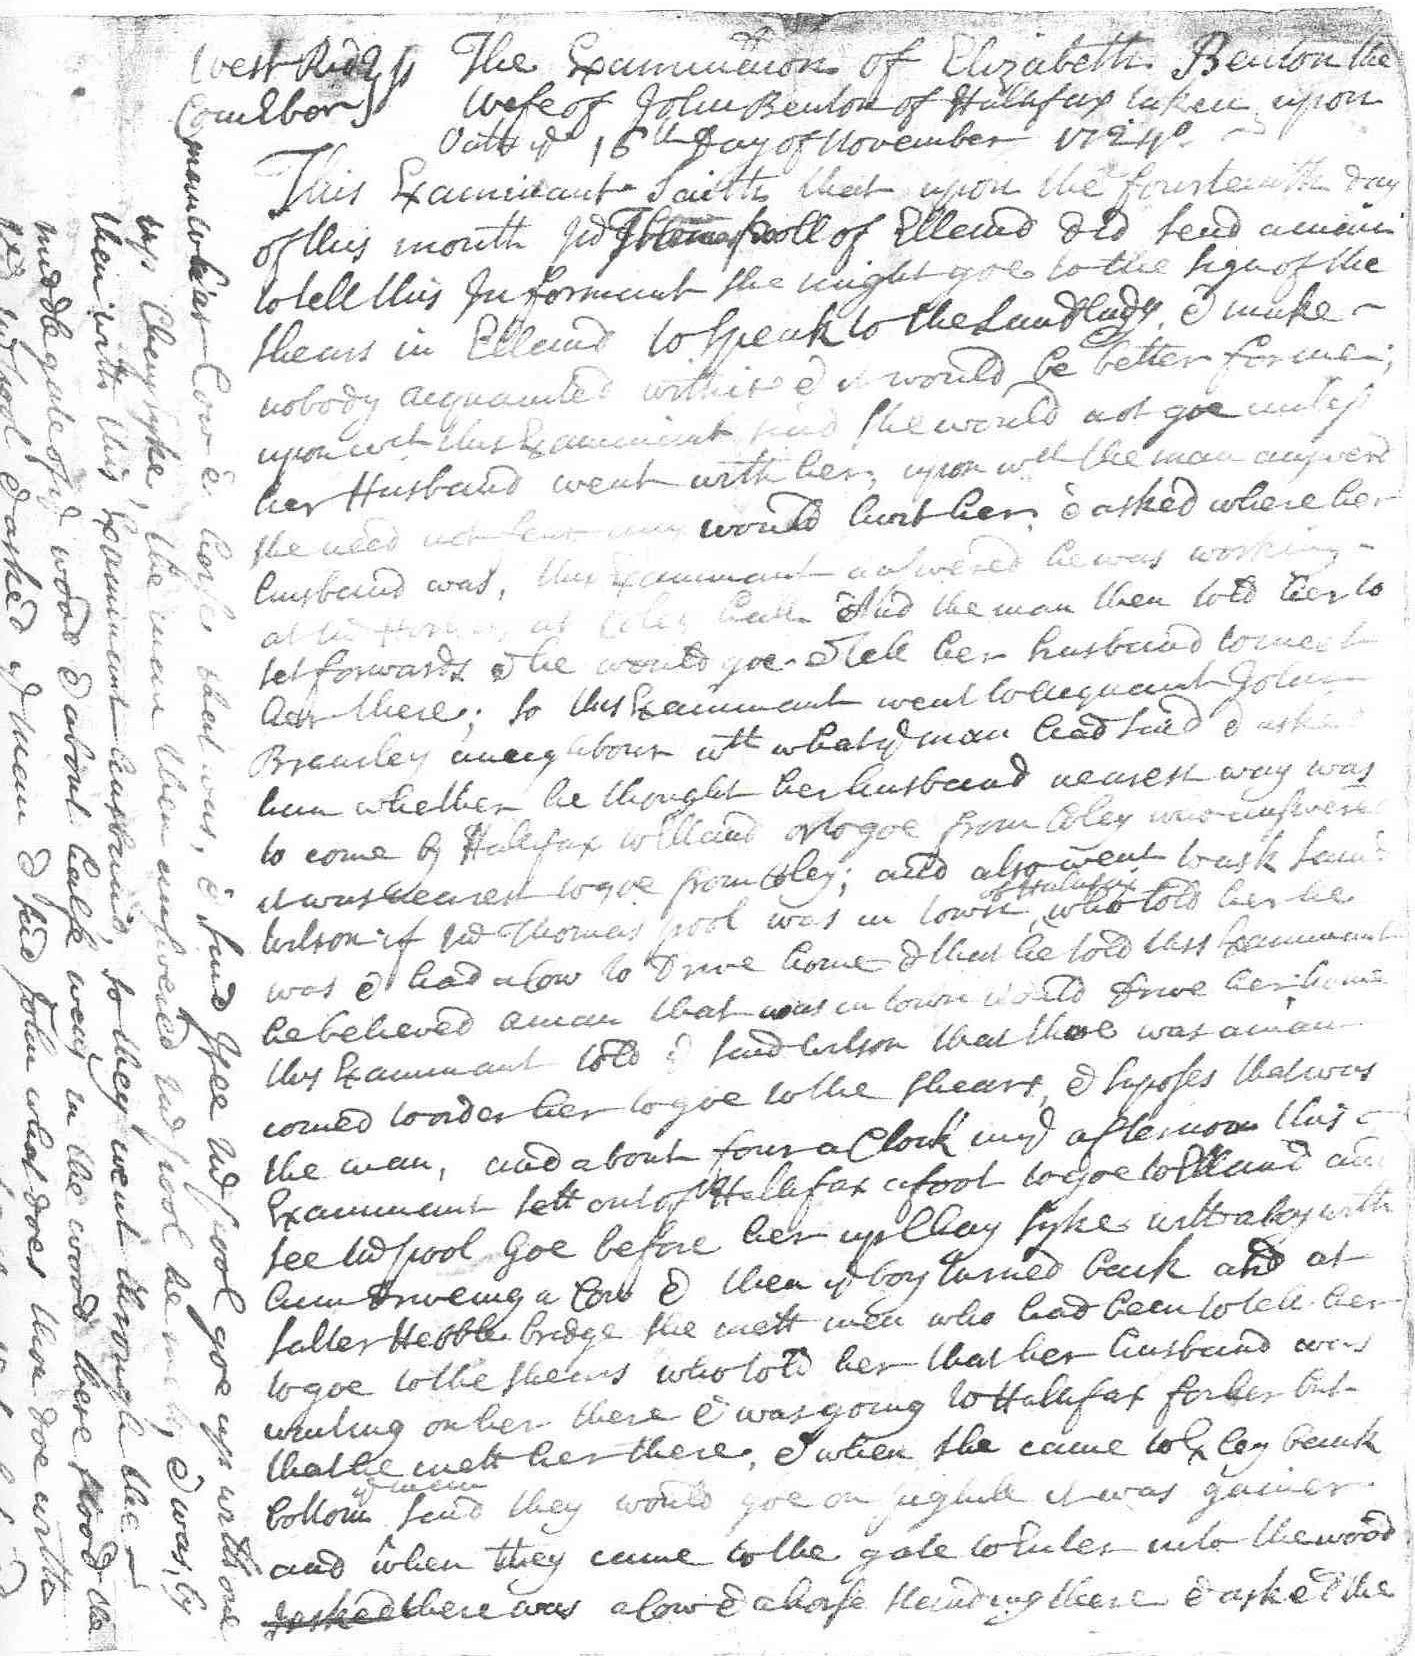 West Rid}
Com Ebor} The Examination of Elizabeth Benton the
wife of John Benton of Hallifax taken upon
Oath ye 16th Day of November 1724.
This Examinant Saith that upon the fourteenth day
of this month Jno Thomas Pooll of Elland did send a man
to tell this Informant she might goe to the Sign of the
Shears in Elland to speak to the Landlady, & make
nobody acquainted with it & it would be better for me;
upon wch this Examinant said she would not goe unless
her Husband went with her; upon wch the man answerd
she need not fear any would hurt her, & asked where her
husband was, this Examinant answered he was working
at at Coley hall. And the man then told her to
set forwards & he would goe & tell her husband to meet
her there; so this Examinant went to acquaint John
Bramley a neighbour wth what ye man had said & aske
him whether he thought her husband nearest way was
to come by Hallifax to Elland or to goe from Coley who answered
it was nearest to goe from Coley; and also went to ask Saml
Wilson if sd Thomas pool was in town of Halifax who told her he
was & had a Cow to Drive home & that he told this Examinant
he believed a man that was in town would drive her home
this Examinant told ye said Wilson that there was a man
comed to order her to goe to the Shears, & suposes that was
the man, and about four a Clock in ye afternoon this
Examinant sett out of Hallifax afoot to goe to Elland and
see sd pool goe before her up Chay Syke with a boy with
him driveing a Cow & then ye boy turned back and at
Salter Hebble bridge she mett man who had been to tell her
to goe to the Shears who told her that her husband was
waiting on her there & was going to Hallifax for her but
that he mett her there, & when she came to Exley bank
bottom ye man said they would goe on it was gainer
and when they came to the gate to Enter into the wood
there was a Cow & a horse standing there & asked the
man whose Cow & horse that was, & said I see sd pool goe up with one
up Chey syke, the man then answered sd pool he me by, & was, by
then with this Examinant husband, so they went through the
middle gate of sd wood & about halfe way in the wood there stood the
sd pool & asked ye man & said John what does thou doe with